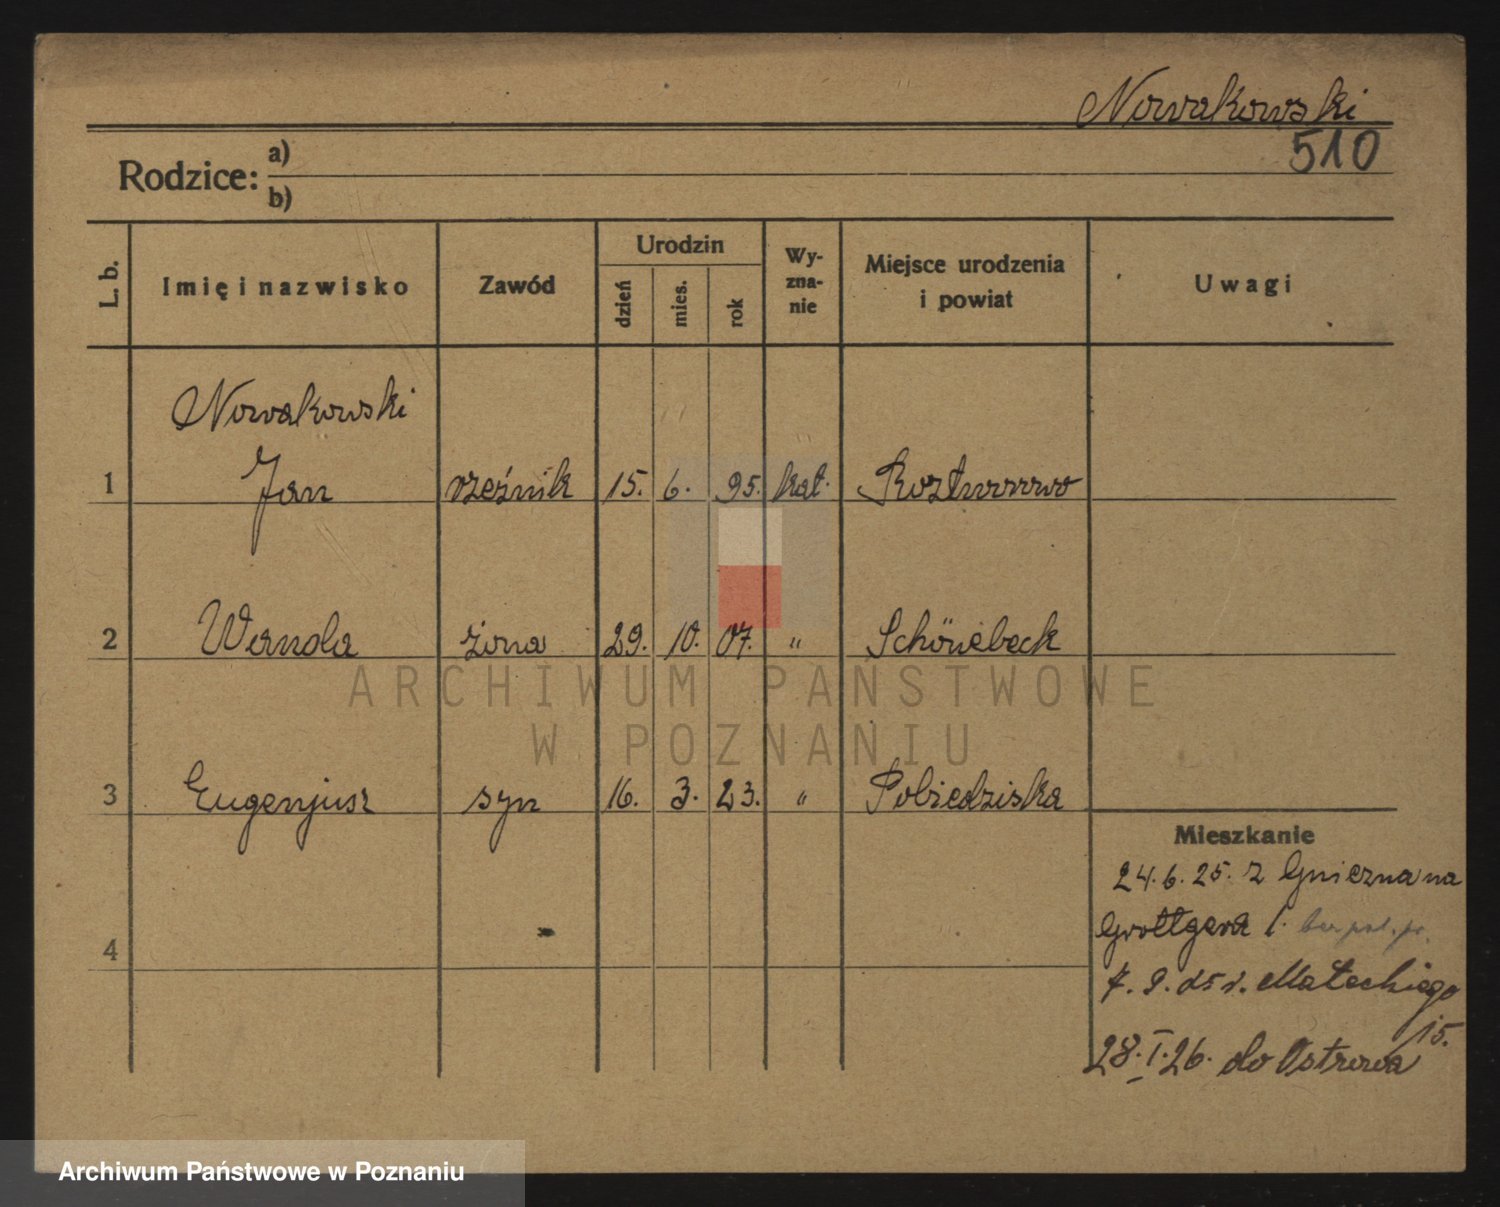 Nowakowski
510
Rodzice: a)
b)
L. b.
Imię i nazwisko
Zawód
Urodzin
dzień
mies.
rok
Wy-
zna-
nie
Miejsce urodzenia
i powiat
Uwagi
Nowakowski
1 Jan rzeźnik 15. 6. 95. kat.
2 Wanda żona 29. 10. 07. " Schönebeck
3 Eugenjusz syn 16. 3. 23. " Pobiedziska
Mieszkanie
24.6.25. z Gniezna na
Grottgera 1.
7. 9. 25 r. Mateckiego
15.
28.I.26. do Ostrowa
4
ARCHIWUM PAŃSTWOWE
W POZNANIU
Archiwum Państwowe w Poznaniu